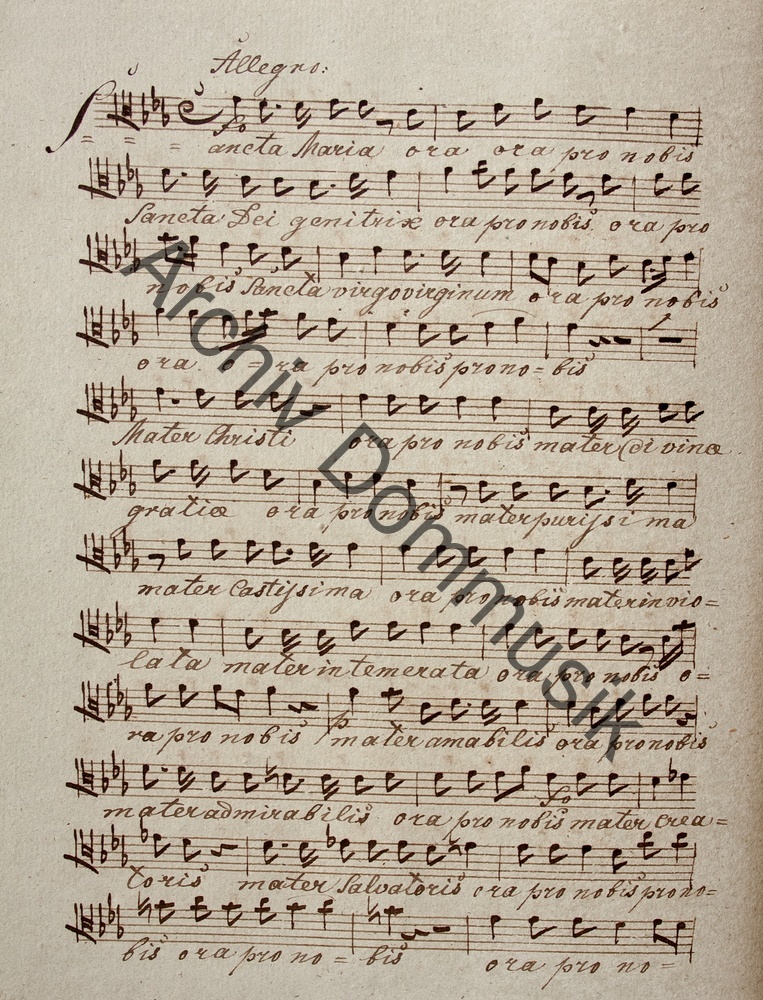 Allegro:
fo
Sancta Maria ora ora pro nobis
Sancta Dei genitrix ora pro nobis. ora pro
nobis Sancta virgo virginum ora pro nobis
ora o - ra pro nobis pro no = bis
Mater Christi ora pro nobis mater divinæ
gratiæ ora pro nobis mater purissima
mater Castissima ora pro nobis mater invio=
lata mater intemerata ora pro nobis o=
ra pro nobis mater amabilis ora pro nobis
p
mater admirabilis ora pro nobis mater crea=
fo
toris mater Salvatoris ora pro nobis pro no=
bis ora pro no = bis ora pro no =
Archiv Dommusik